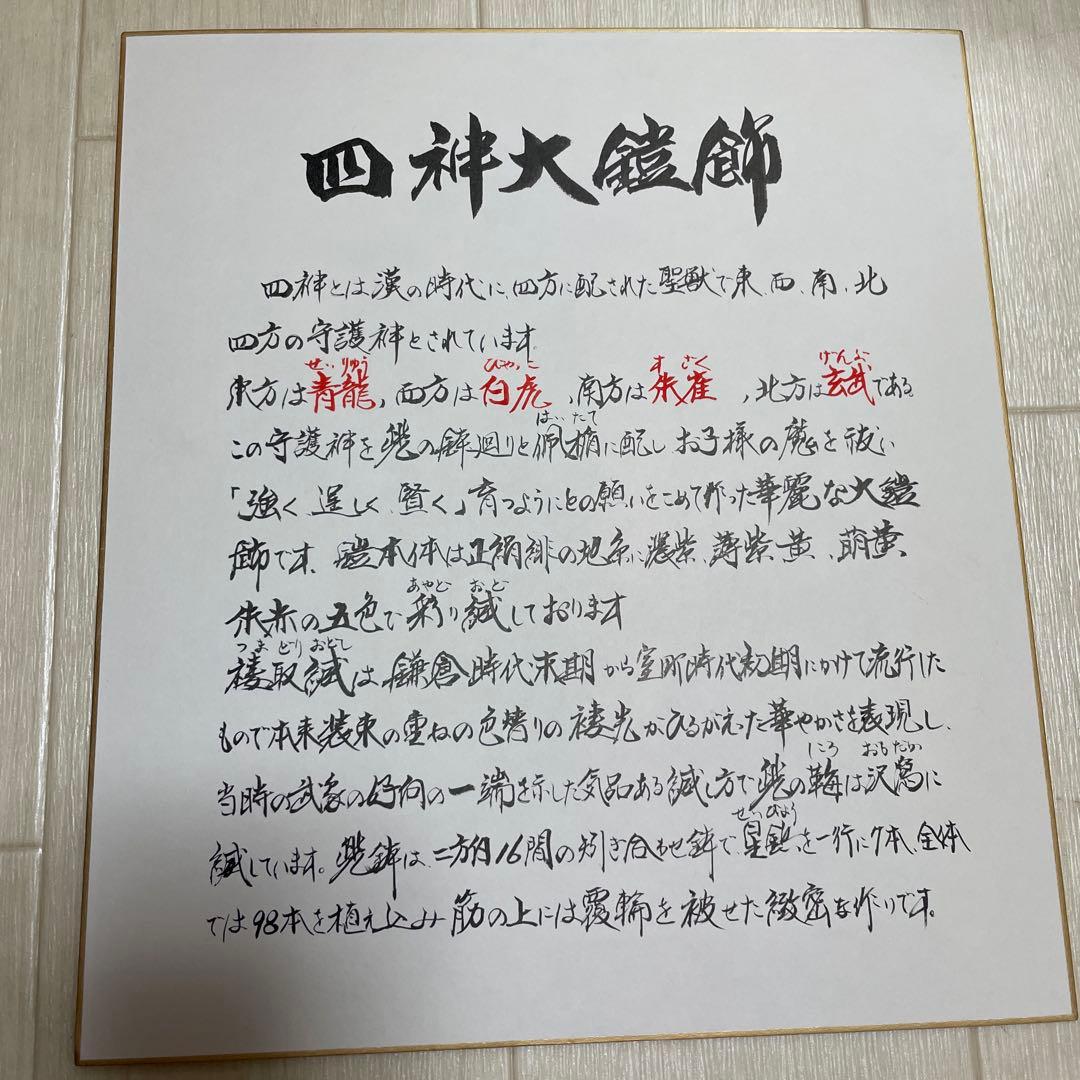 四神大鎧飾
四神とは漢の時代に、四方に配された聖獣で東、西、南、北
四方の守護神とされています。
せいりゅう びゃっこ すざく げんぶ
東方は青龍、西方は白虎、南方は朱雀、北方は玄武である
はいたて
この守護神を兜の鉢廻りと佩楯に配しお子様の魔を祓い
「強く、逞しく、賢く」育つようにとの願いをこめて作った華麗な大鎧
飾です。鎧本体は正絹緋の地糸に濃紫、薄紫、黄、萌黄、
あやど おど
朱赤の五色で彩り縅しております
つまどりおどし
褄取縅は鎌倉時代末期から室町時代初期にかけて流行した
もので本来装束の重ねの色替りの褄先がひるがえった華やかさを表現し、
当時の武家の好向の一端を示した気品ある縅し方で兜の𩊱は沢瀉に
しころ おもだか
縅しています。兜鉢は、二方白16間の矧き合わせ鉢で星鋲を一行に7本、全体
せいびょう
では98本を植え込み筋の上には覆輪を被せた緻密な作りです。